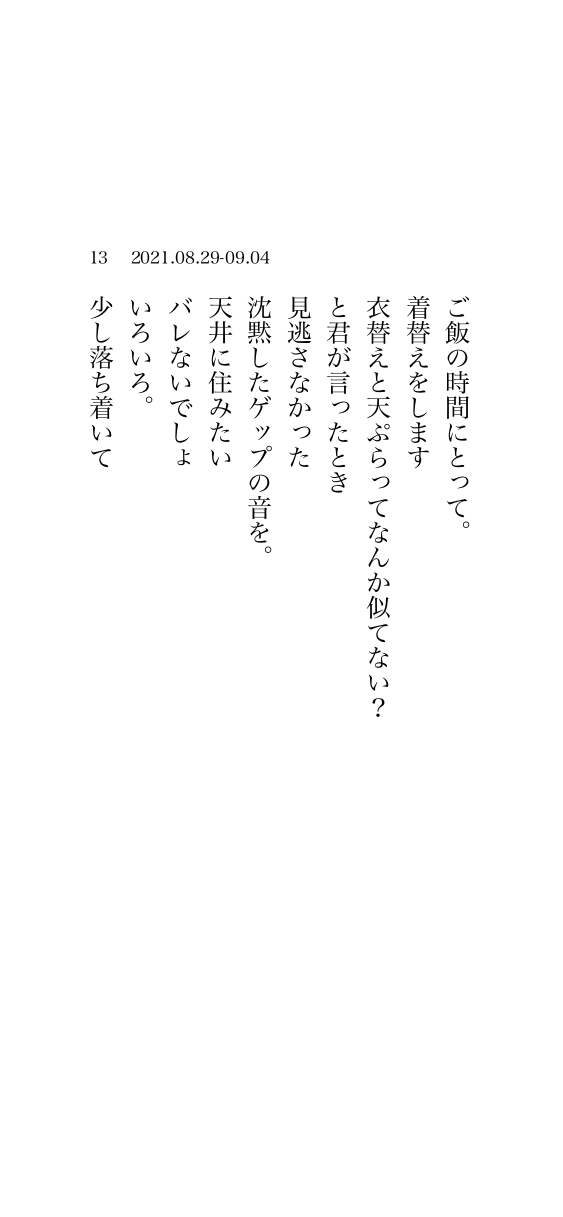 13 2021.08.29-09.04
ご飯の時間にとって。
着替えをします
衣替えと天ぷらってなんか似てない？
と君が言ったとき
見逃さなかった
沈黙したゲップの音を。
天井に住みたい
バレないでしょ
いろいろ。
少し落ち着いて